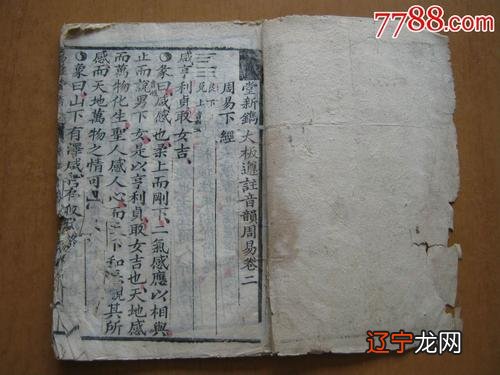 7788.com
堂新鐫大板遵註音韻周易卷二
周易下經
艮下
兌上
咸亨利貞取女吉
彖曰咸感也柔上而剛下二氣感應以相與
止而說男下女是以亨利貞取女吉也天地感
而萬物化生聖人感人心而天下和平觀其所
感而天地萬物之情可
象曰山下有澤咸君
辽宁龙网